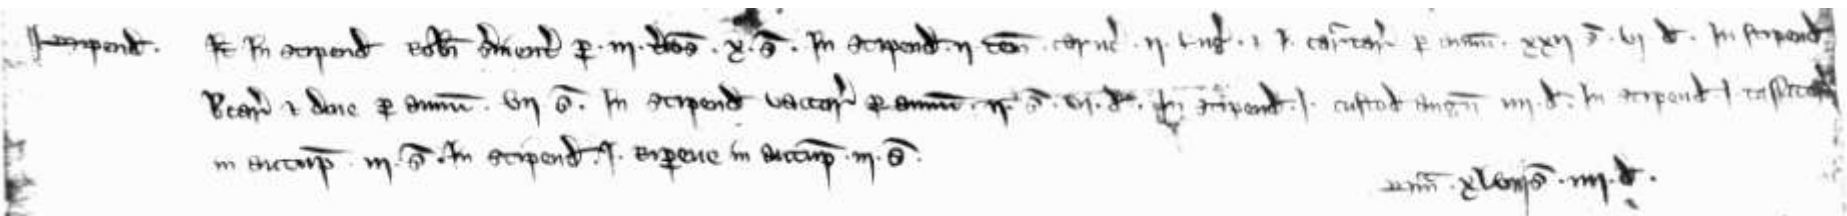 Stipend. Et In stipend Rob̄ti s̄vient p. iij. t'īos. x. s̄. In stipend. ij ten. caruc̄. ij. fuḡ. ⁊ j. carectar̄ p annū. xxij s̄. vj d. In stipend
B'car̄ ⁊ daie p annū. vij s̄. In stipend vaccar̄ p annū. ij. s̄. vj. d. In stipend. j. custod agn̄ iiij. d. In stipend. j
in autūp̄. iij. s̄. In stipend. j. in autūp̄. ij. s̄.
sm̄. xlviij s̄. iiij. d.